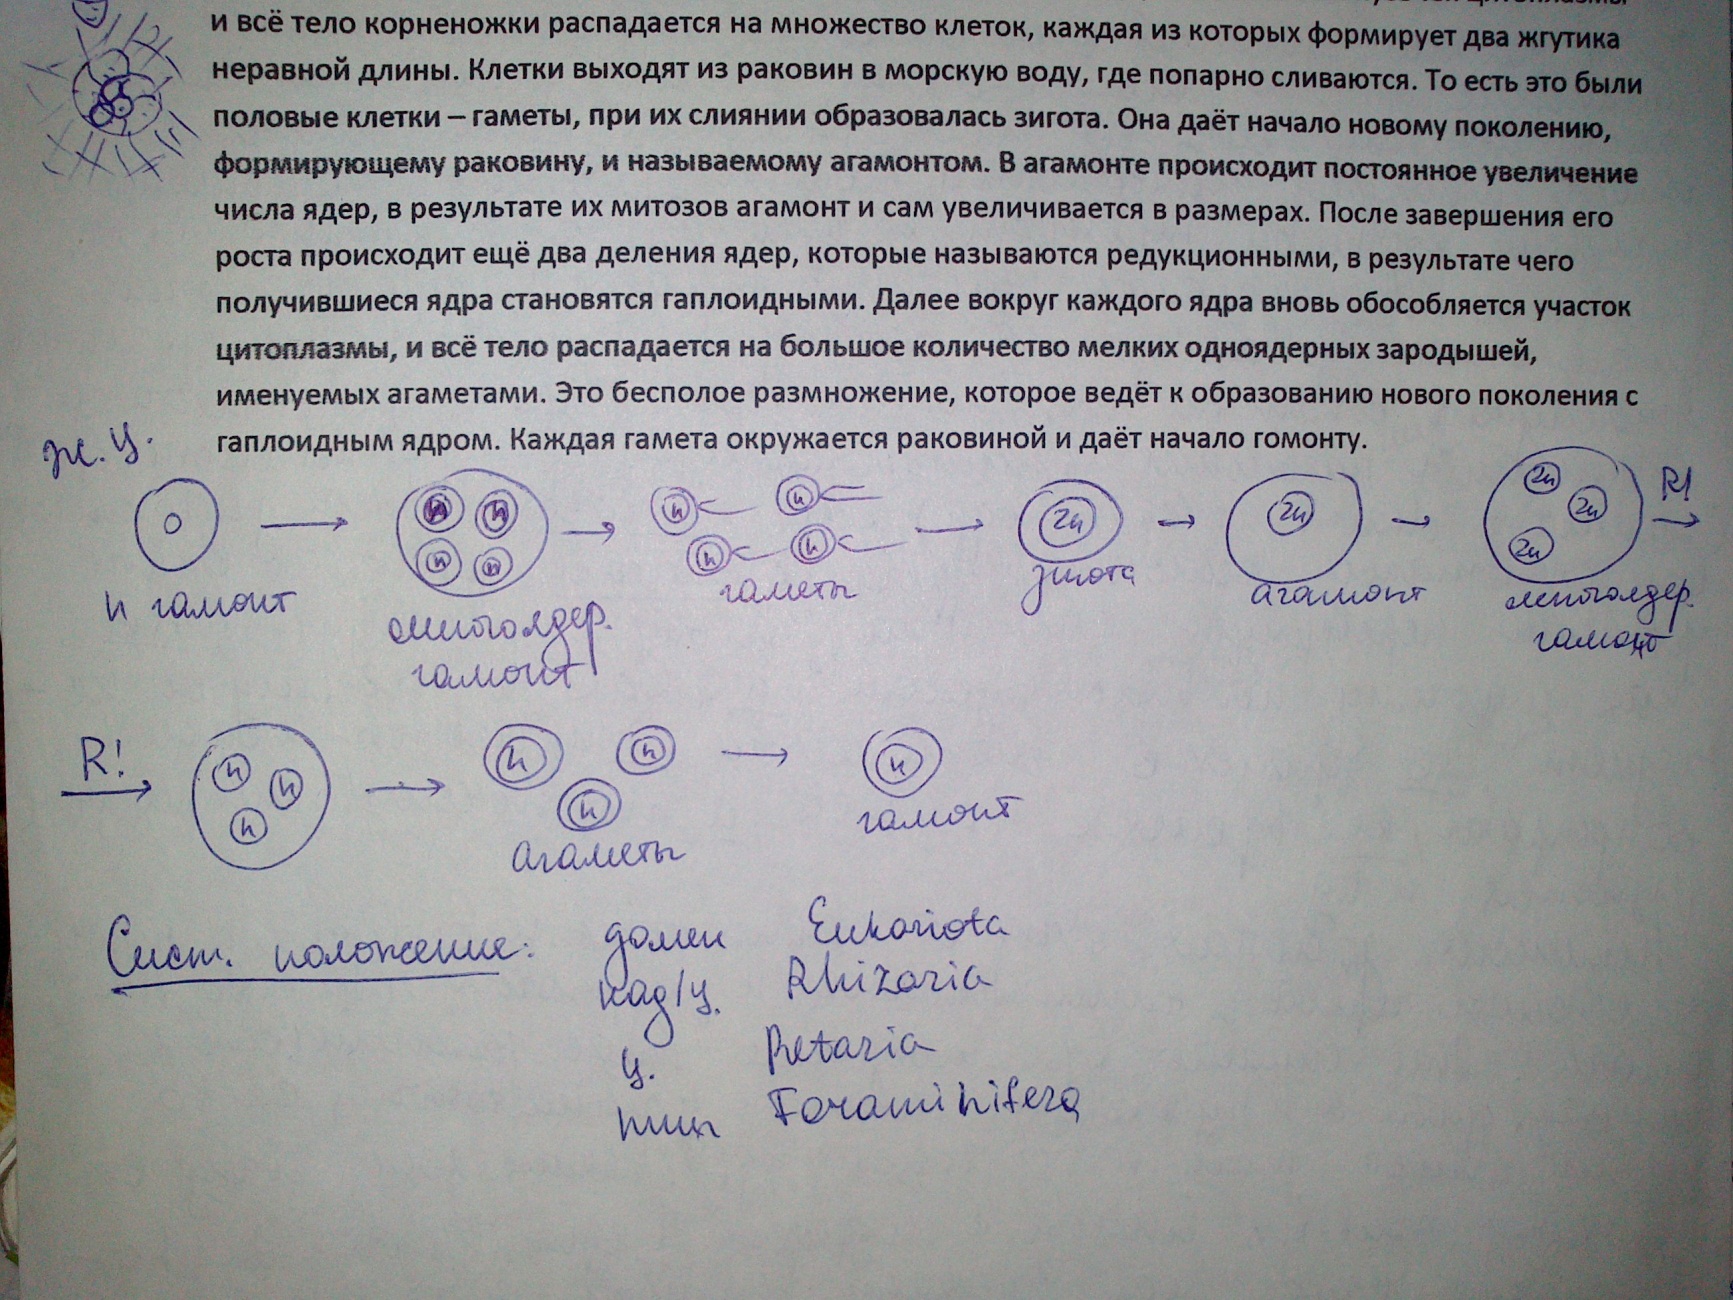 и всё тело корненожки распадается на множество клеток, каждая из которых формирует два жгутика
неравной длины. Клетки выходят из раковин в морскую воду, где попарно сливаются. То есть это были
половые клетки – гаметы, при их слиянии образовалась зигота. Она даёт начало новому поколению,
формирующему раковину, и называемому агамонтом. В агамонте происходит постоянное увеличение
числа ядер, в результате их митозов агамонт и сам увеличивается в размерах. После завершения его
роста происходит ещё два деления ядер, которые называются редукционными, в результате чего
получившиеся ядра становятся гаплоидными. Далее вокруг каждого ядра вновь обособляется участок
цитоплазмы, и всё тело распадается на большое количество мелких одноядерных зародышей,
именуемых агаметами. Это бесполое размножение, которое ведёт к образованию нового поколения с
гаплоидным ядром. Каждая гамета окружается раковиной и даёт начало гомонту.
ж. ц.
n n n n
n n n n
2n
2n
2n 2n 2n
R!
n гамонт
многоядер.
гамонт
гаметы
зигота
агамонт
многоядер.
гамонт
R!
n n n
n n n
n
агаметы
гамонт
Сист. положение:
домен Eukariota
над/ц. Rhizaria
ц. Retaria
тип Foraminifera